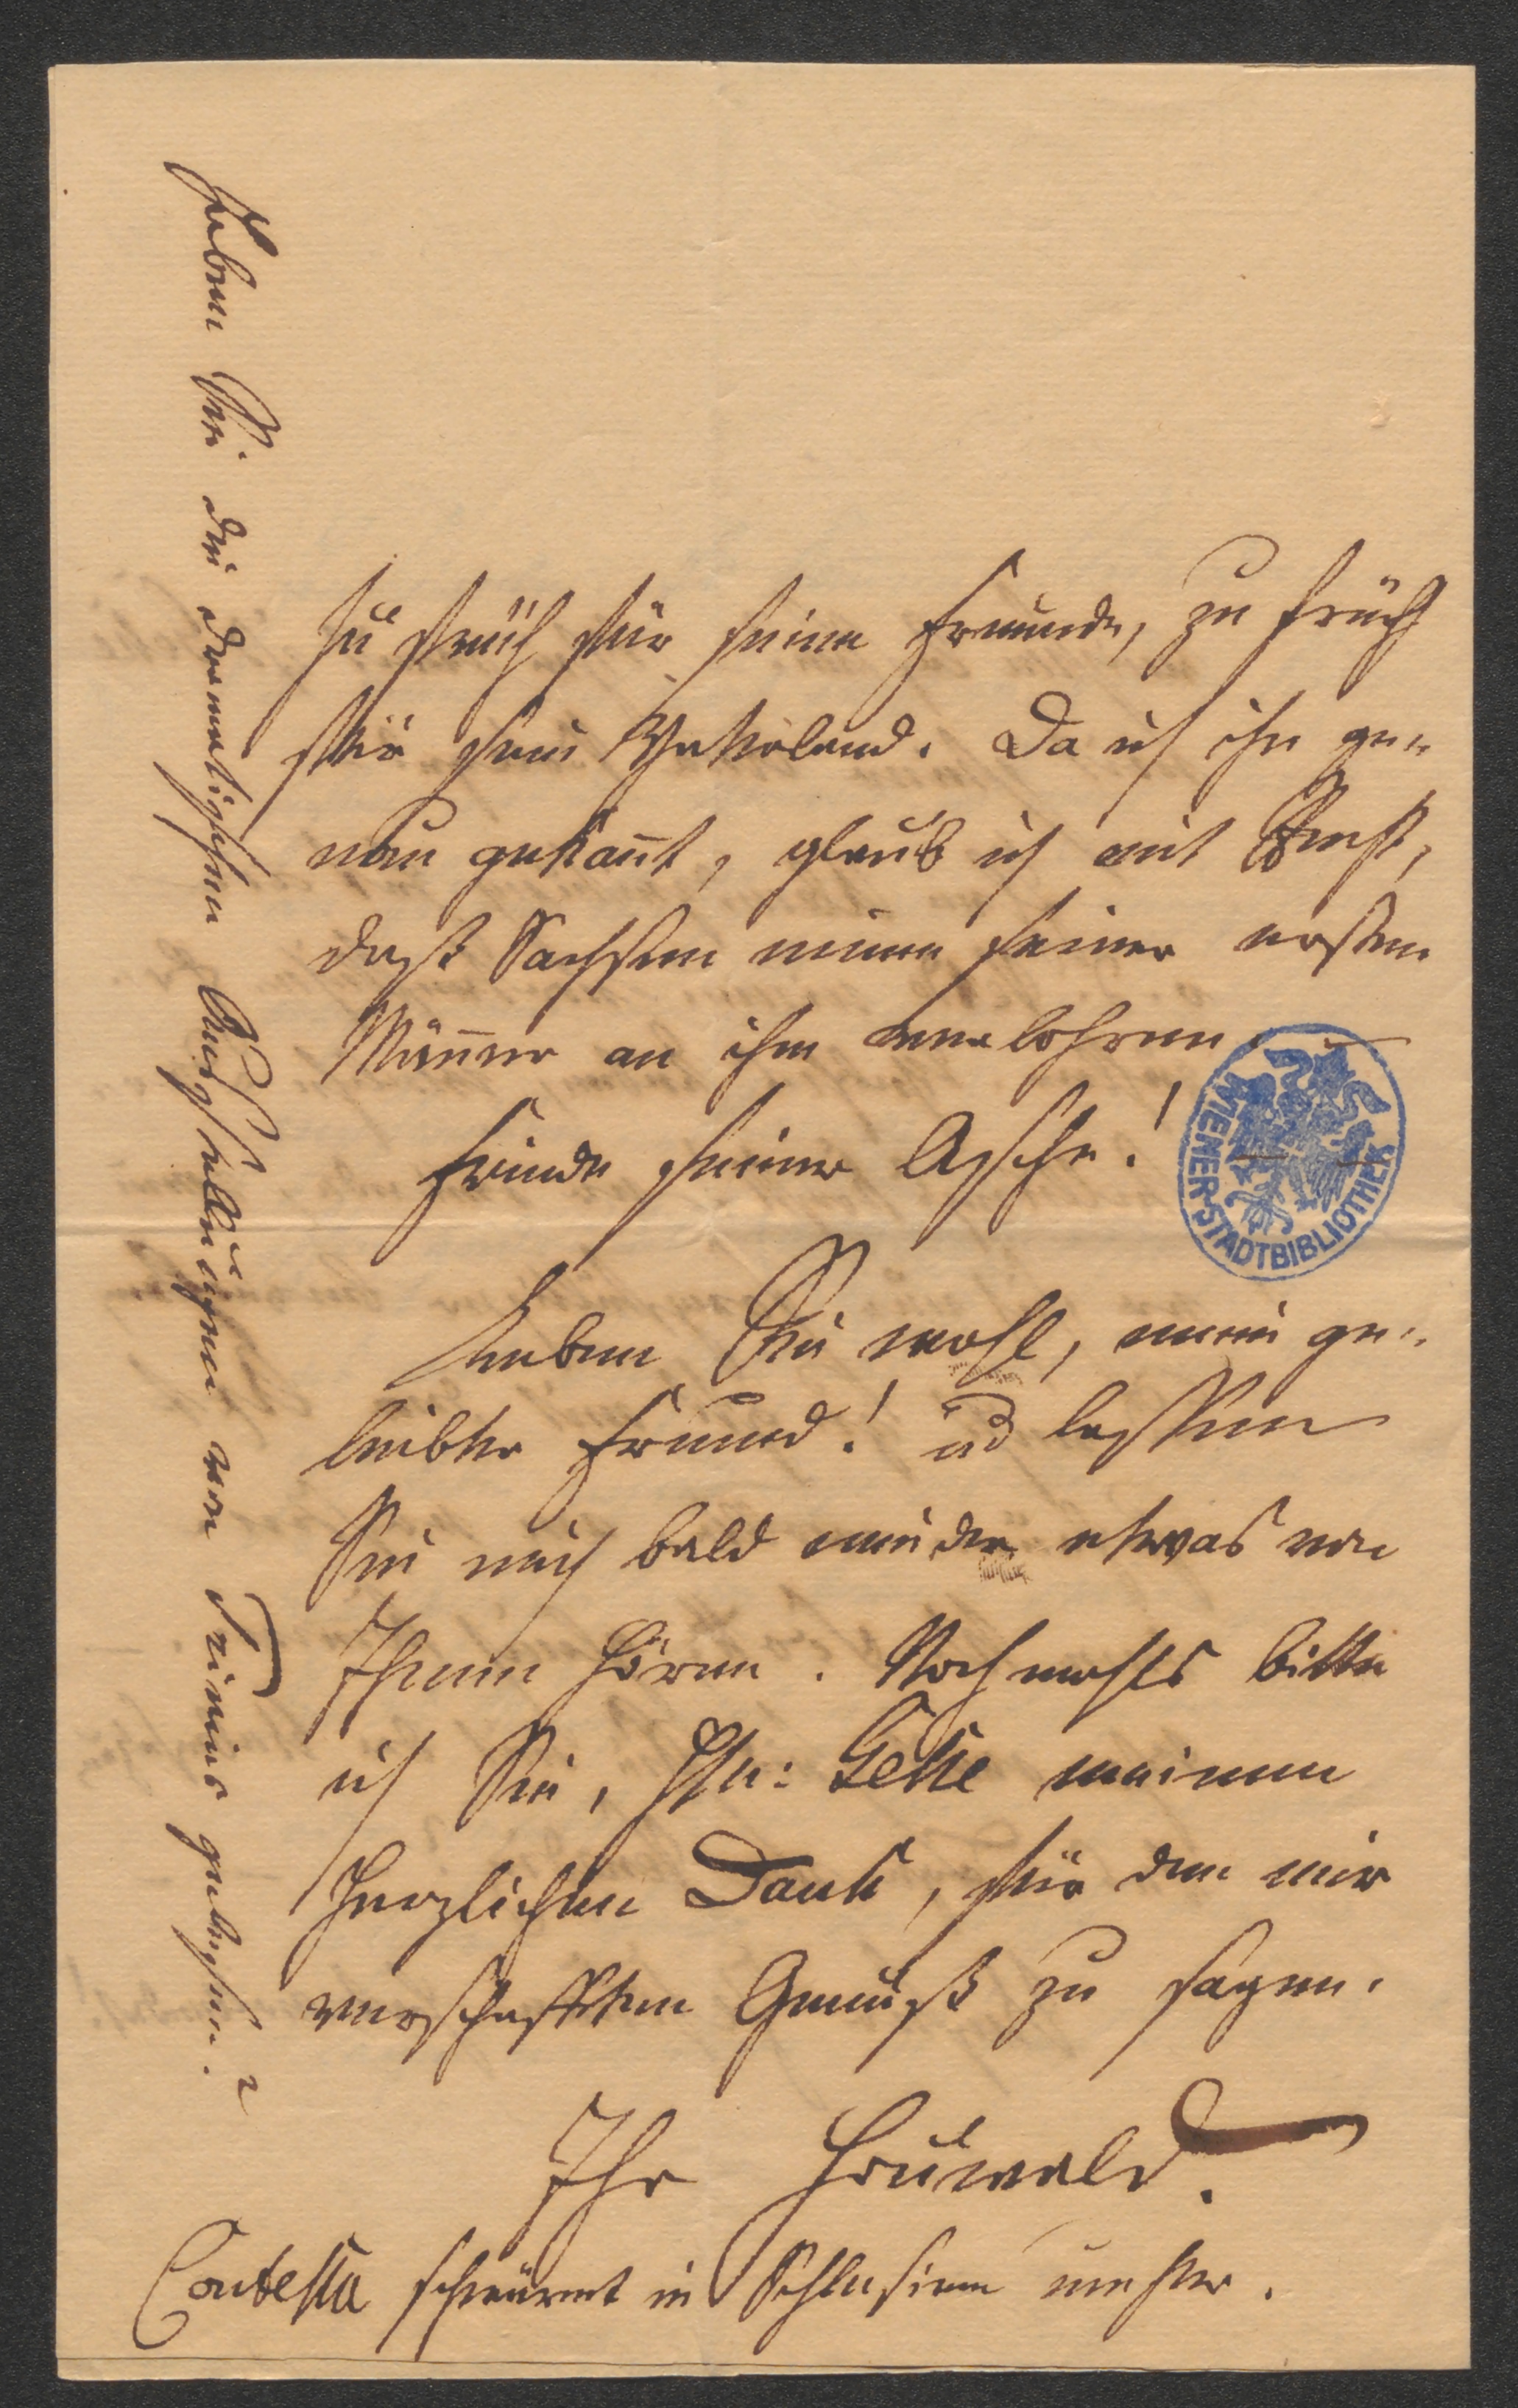 zu früh für seine Freunde, zu früh
für sein Vaterland. Da ich ihn ge-
nau gekannt, glaub ich mit Ernst,
daß Sachsen einen seiner ersten
Männer an ihm verlohren. —
Friede seiner Asche! — —
Leben Sie wohl, mein ge-
liebter Freund! und lassen
Sie mich bald wieder etwas von
Ihnen hören. Nochmahls bitte
ich Sie, Hrn: Gehe meinen
herzlichen Dank, für den mir
verschafften Genuß zu sagen.
Ihr Houwald.
Contessa schwärmt in Schlesien umher.
Haben Sie die dramatischen Ausstellungen von Treinius gelesen?
WIENER STADTBIBLIOTHEK